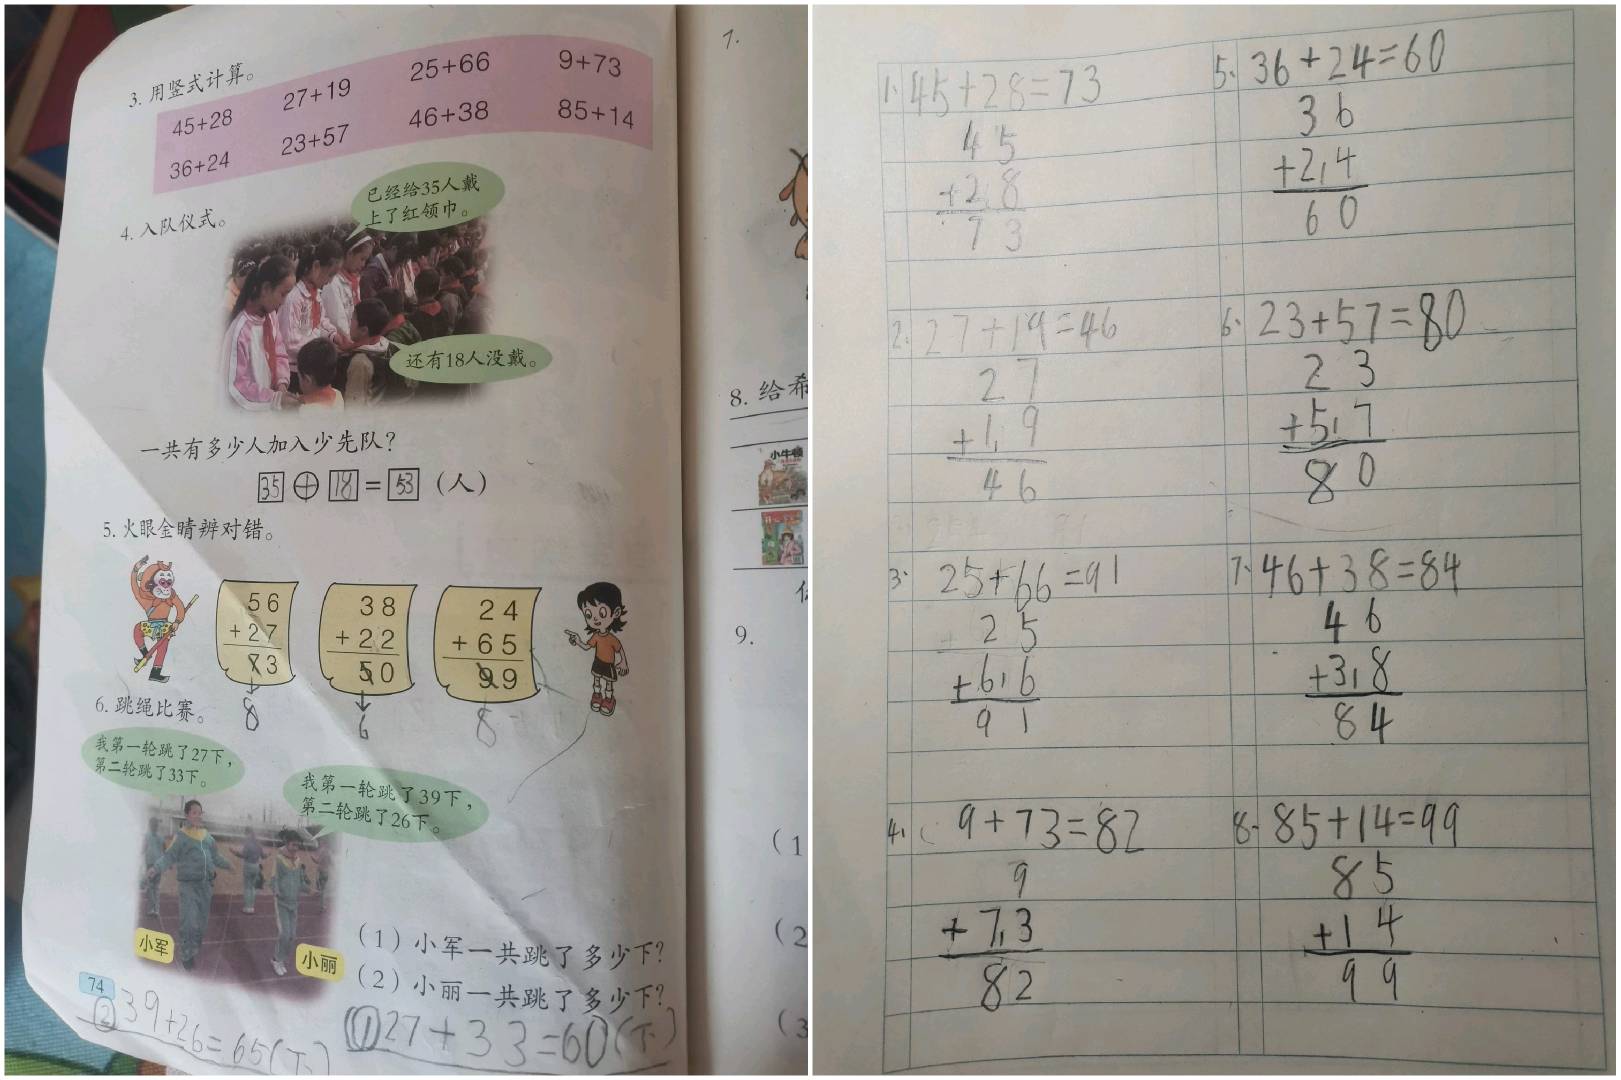 3. 用竖式计算。
45+28 27+19 25+66 9+73
36+24 23+57 46+38 85+14
4. 入队仪式。
已经给35人戴
上了红领巾。
还有18人没戴。
一共有多少人加入少先队？
35 + 18 = 53 (人)
5. 火眼金睛辨对错。
56
+27
73
8
38
+22
50
6
24
+65
99
8
6. 跳绳比赛。
我第一轮跳了27下，
第二轮跳了33下。
我第一轮跳了39下，
第二轮跳了26下。
小军
小丽
(1) 小军一共跳了多少下？
(2) 小丽一共跳了多少下？
74
②39+26=65(下)
①27+33=60(下)
7.
8. 给希
小牛顿
9.
(1
(2
(3
1. 45+28=73
45
+28
73
2. 27+19=46
27
+19
46
3. 25+66=91
25
+66
91
4. 9+73=82
9
+73
82
5. 36+24=60
36
+24
60
6. 23+57=80
23
+57
80
7. 46+38=84
46
+38
84
8. 85+14=99
85
+14
99